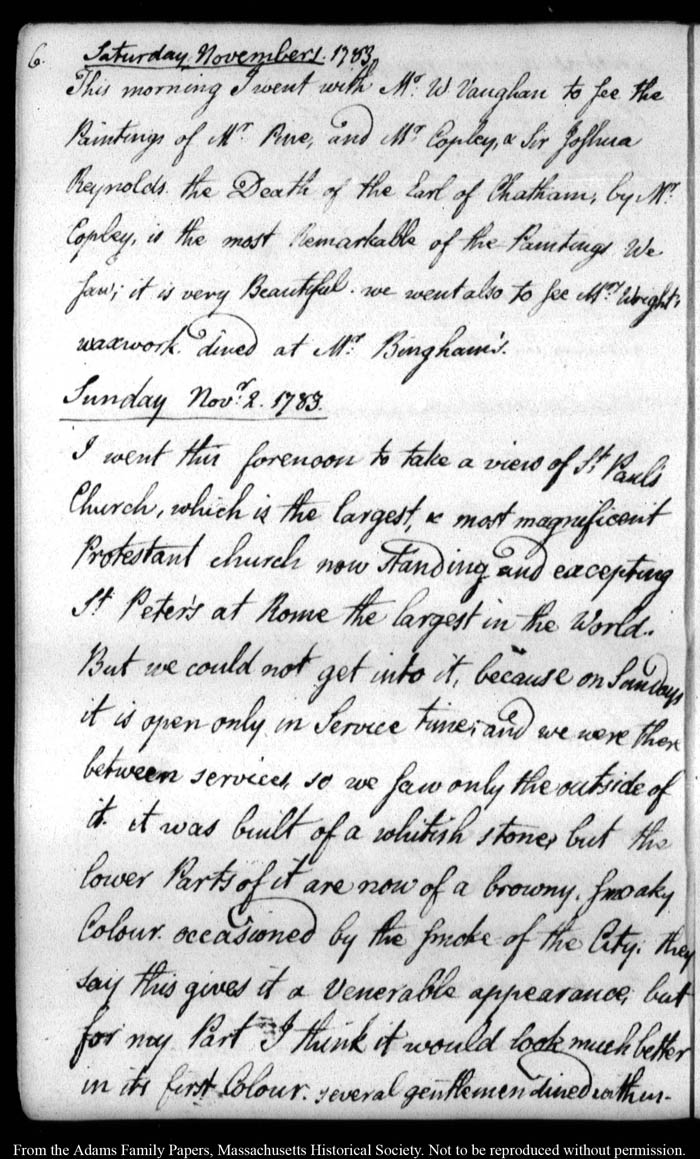 6. Saturday November 1. 1783.
This morning I went with Mr. W. Vaughan to see the
Paintings of Mr. Pine, and Mr. Copley, & Sir Joshua
Reynolds. the Death of the Earl of Chatham, by Mr.
Copley, is the most Remarkable of the Paintings We
saw; it is very Beautiful. we went also to see Mrs. Wright's
waxwork. dined at Mr. Bingham's.
Sunday Novr. 2. 1783.
I went this forenoon to take a view of St. Paul's
Church, which is the largest, & most magnificent
Protestant church now standing and excepting
St. Peter's at Rome the largest in the World.
But we could not get into it, because on Sundays
it is open only in Service time; and we were there
between services, so we saw only the outside of
it. it was built of a whitish stone, but the
lower Parts of it are now of a browny, smoaky
Colour. occasioned by the smoke of the City. they
say this gives it a venerable appearance, but
for my Part I think it would look much better
in its first Colour. several gentlemen dined with us.
From the Adams Family Papers, Massachusetts Historical Society. Not to be reproduced without permission.